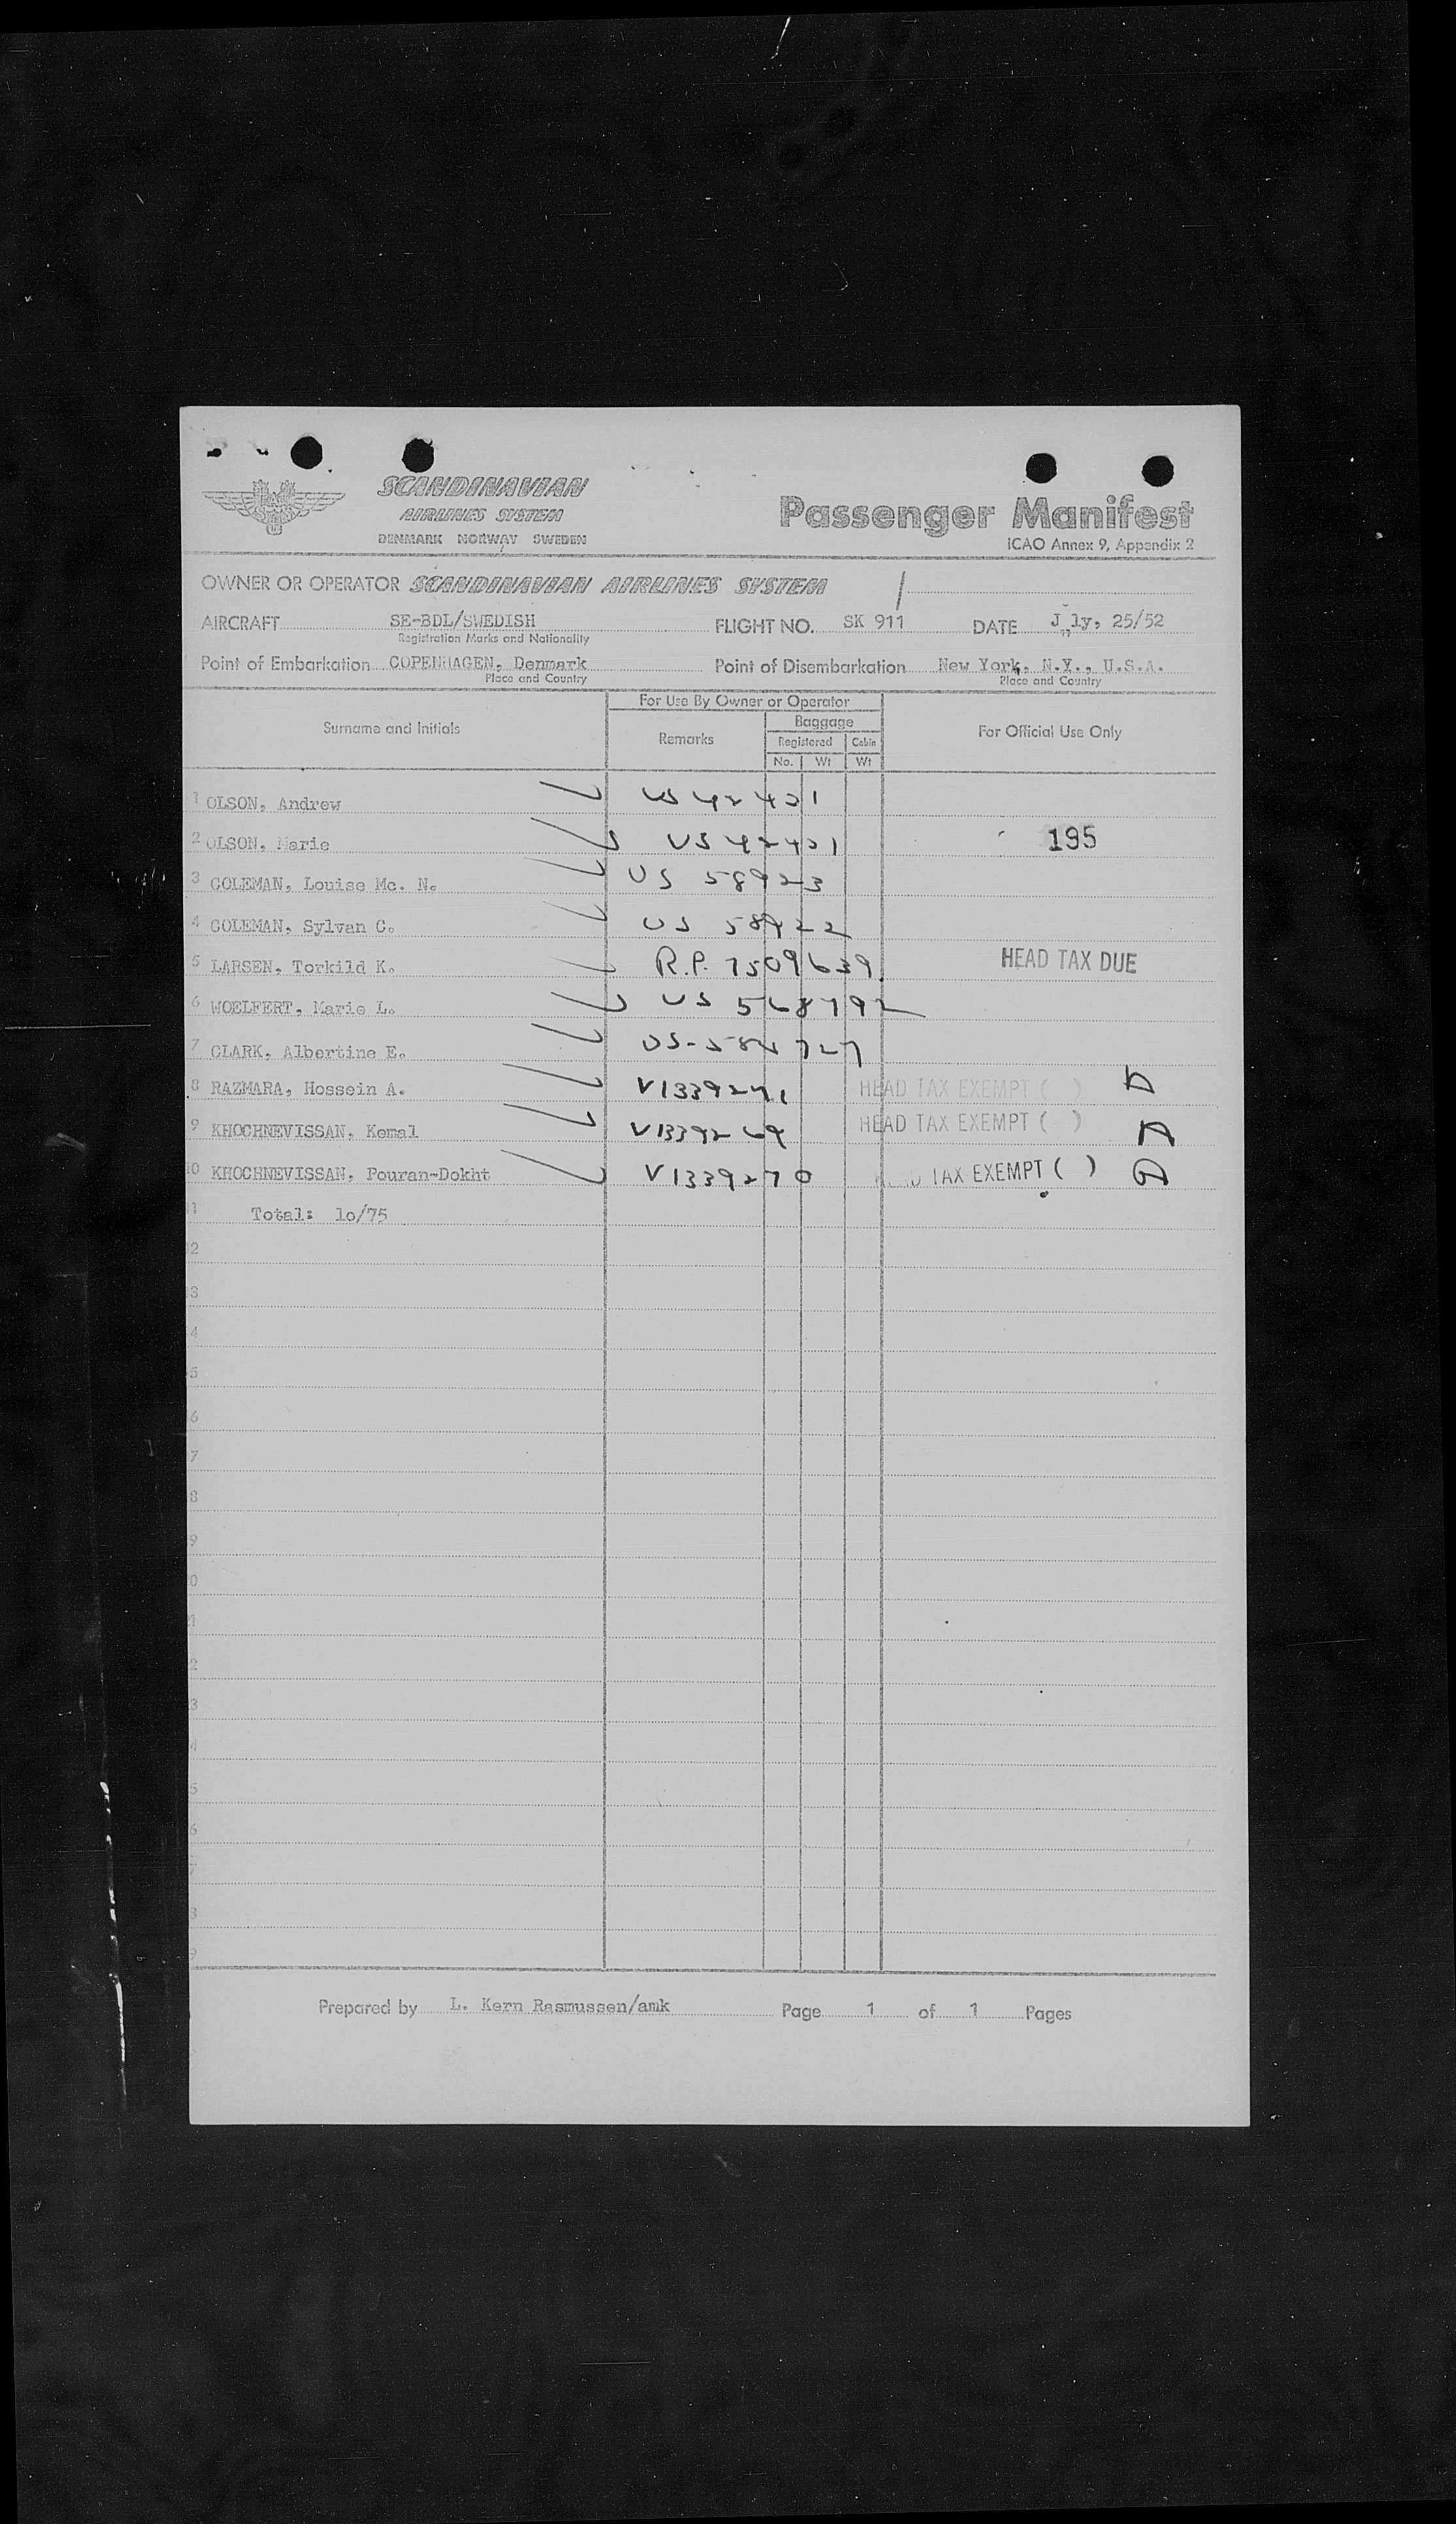 SCANDINAVIAN
AIRLINES SYSTEM
DENMARK NORWAY SWEDEN
Passenger Manifest
ICAO Annex 9, Appendix 2
OWNER OR OPERATOR SCANDINAVIAN AIRLINES SYSTEM
AIRCRAFT SE-BDL/SWEDISH FLIGHT NO. SK 911 DATE J ly, 25/52
Registration Marks and Nationality
Point of Embarkation COPENHAGEN, Denmark Point of Disembarkation New York, N.Y., U.S.A.
Place and Country Place and Country
For Use By Owner or Operator
Surname and Initials Remarks Baggage For Official Use Only
Registered Cabin
No. Wt Wt
1 OLSON, Andrew US 42421
2 OLSON, Marie US 42421 195
3 COLEMAN, Louise Mc. N. US 58923
4 COLEMAN, Sylvan C. US 58922
5 LARSEN, Torkild K. R.P. 7509639 HEAD TAX DUE
6 WOELFERT, Marie L. US 568792
7 CLARK, Albertine E. US-584727
8 RAZMARA, Hossein A. V1339271 HEAD TAX EXEMPT ( )
9 KHOCHNEVISSAN, Kemal V1339269 HEAD TAX EXEMPT ( )
10 KHOCHNEVISSAN, Pouran-Dokht V1339270 HEAD TAX EXEMPT ( )
11 Total: 10/75
12
13
14
15
16
17
18
19
20
21
22
23
24
25
26
27
28
29
Prepared by L. Kern Rasmussen/amk Page 1 of 1 Pages